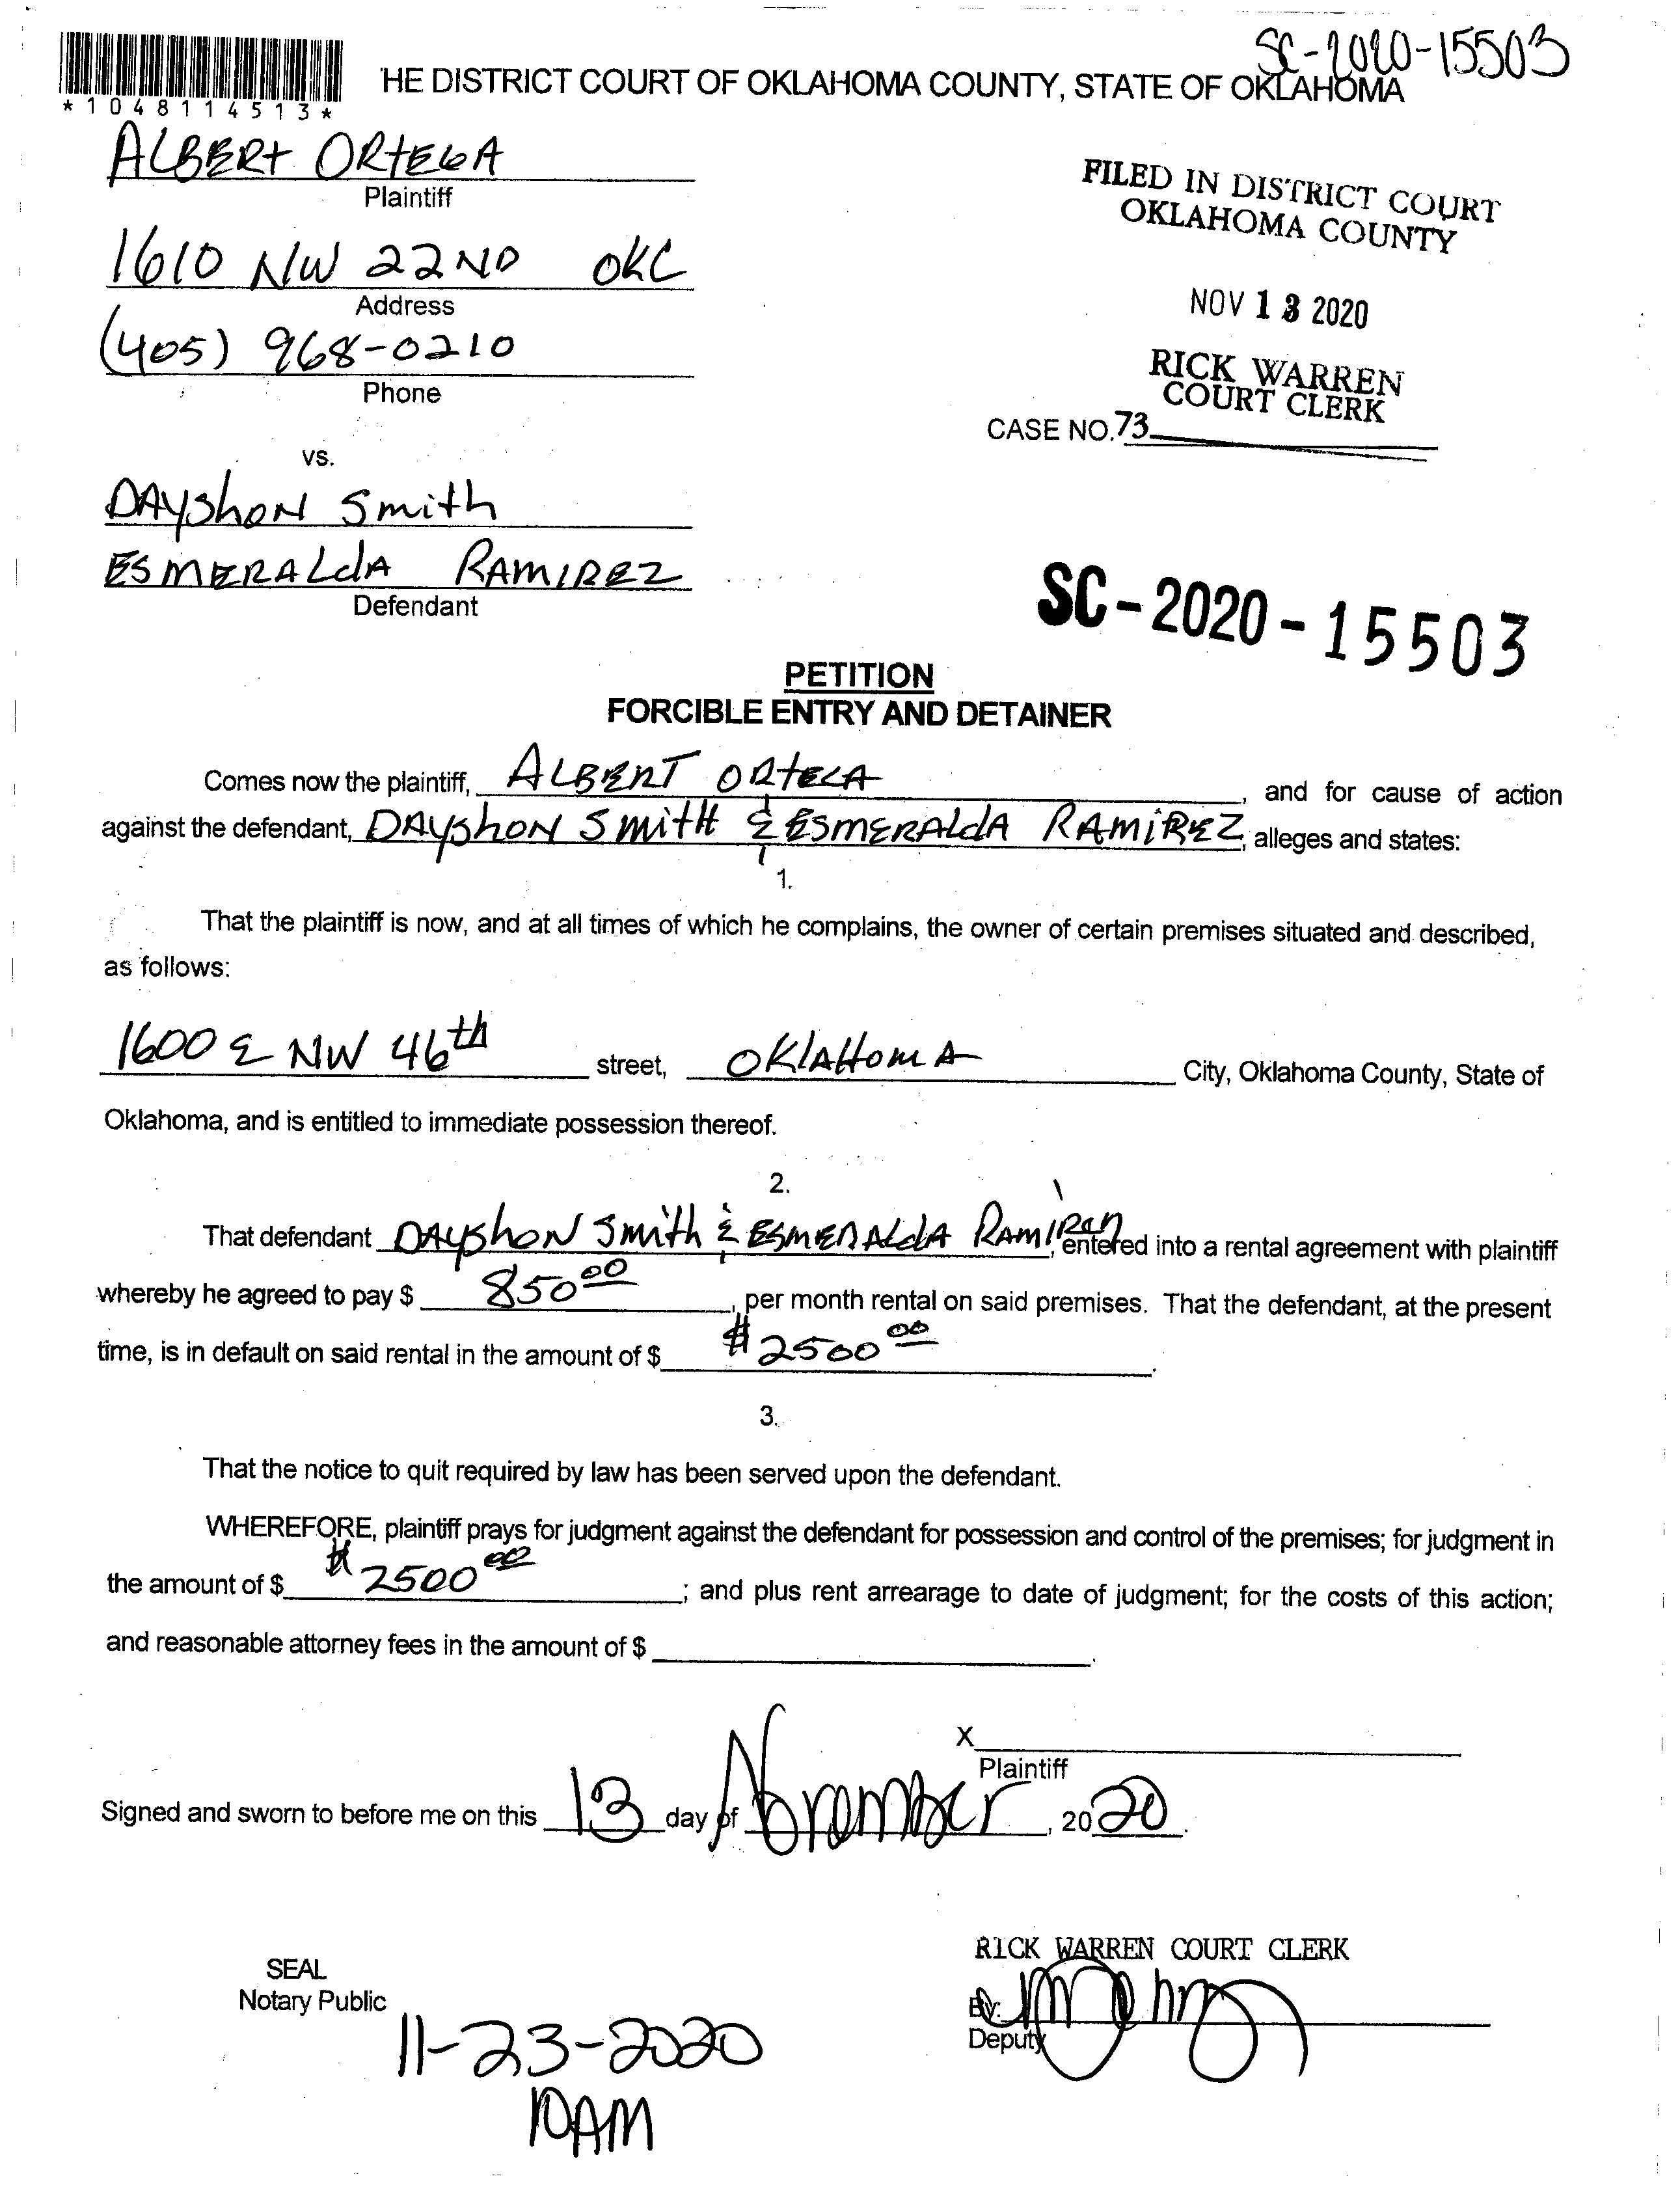 SC-2020-15503
'HE DISTRICT COURT OF OKLAHOMA COUNTY, STATE OF OKLAHOMA
*1048114513*
ALBERT ORTEGA
Plaintiff
1610 NW 22ND OKC
Address
(405) 968-0210
Phone
FILED IN DISTRICT COURT
OKLAHOMA COUNTY
NOV 13 2020
RICK WARREN
COURT CLERK
CASE NO. 73
vs.
DAYSHON Smith
ESMERALdA RAMIREZ
Defendant
SC-2020-15503
PETITION
FORCIBLE ENTRY AND DETAINER
Comes now the plaintiff, ALBERT ORTEGA, and for cause of action
against the defendant, DAYShON SMITH & ESMERALdA RAMIREZ, alleges and states:
1.
That the plaintiff is now, and at all times of which he complains, the owner of certain premises situated and described,
as follows:
1600 E NW 46th street, OKLAHOMA City, Oklahoma County, State of
Oklahoma, and is entitled to immediate possession thereof.
2.
That defendant DAYShON Smith & ESMERALdA RAMIREZ, entered into a rental agreement with plaintiff
whereby he agreed to pay $ 850 00, per month rental on said premises. That the defendant, at the present
time, is in default on said rental in the amount of $ $2500 00.
3.
That the notice to quit required by law has been served upon the defendant.
WHEREFORE, plaintiff prays for judgment against the defendant for possession and control of the premises; for judgment in
the amount of $ $2500 00; and plus rent arrearage to date of judgment; for the costs of this action;
and reasonable attorney fees in the amount of $ .
X
Plaintiff
Signed and sworn to before me on this 13 day of November, 2020.
RICK WARREN COURT CLERK
SEAL
Notary Public
By:
Deputy
11-23-2020
10AM